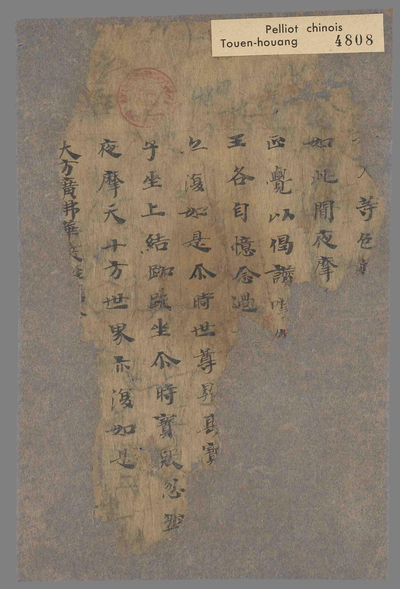 Pelliot chinois
Touen-houang 4808
等色
如此間夜摩
正覺以偈讃
王各自憶念過
亦復如是尒時世尊昇其寳
子坐上結跏趺坐尒時寳殿忽然
夜摩天十方世界亦復如是
大方廣佛華